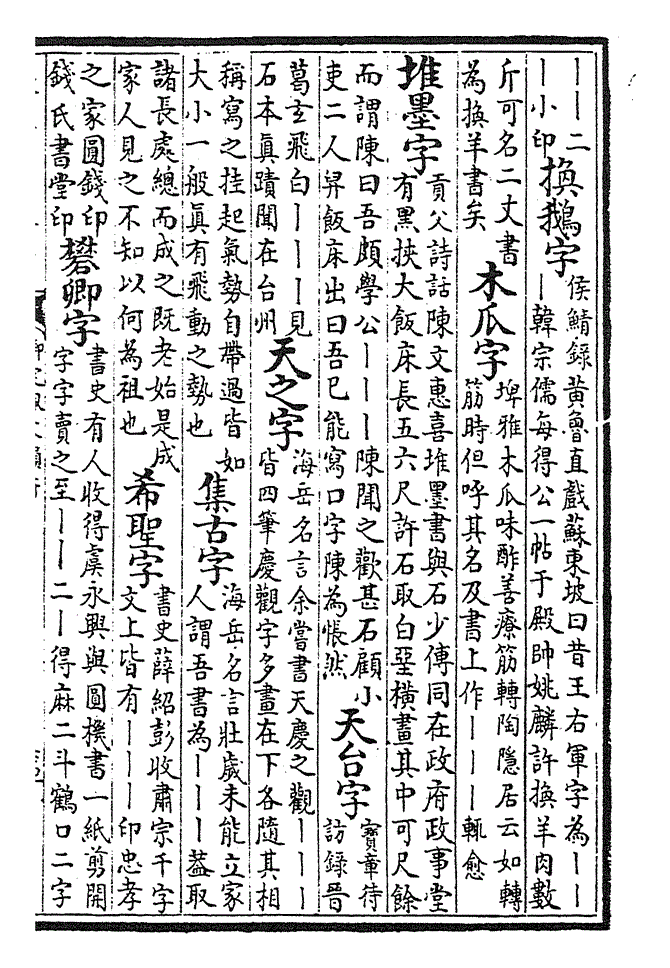 丨丨二
丨小印
換鵝字
侯鯖錄黃魯直戲蘇東坡曰昔王右軍字為丨丨
丨韓宗儒每得公一帖于殿帥姚麟許換羊肉數
斤可名二丈書
為換羊書矣
木瓜字
埤雅木瓜味酢善療筋轉陶隱居云如轉
筋時但呼其名及書上作丨丨丨輒愈
堆墨字
貢父詩話陳文惠喜堆墨書與石少傅同在政府政事堂
有黑挾大飯床長五六尺許石取白堊橫畫其中可尺餘
而謂陳曰吾頗學公丨丨丨陳聞之歡甚石顧小
吏二人舁飯床出曰吾巳能寫口字陳為悵然
天台字
寶章待
訪錄晉
葛玄飛白丨丨丨見
石本眞蹟聞在台州
天之字
海岳名言余嘗書天慶之觀丨丨丨
皆四筆慶觀字多畫在下各隨其相
稱寫之挂起氣勢自帶過皆如
大小一般眞有飛動之勢也
集古字
海岳名言壯歲未能立家
人謂吾書為丨丨丨葢取
諸長處總而成之既老始是成
家人見之不知以何為祖也
希聖字
書史薛紹彭收肅宗千字
文上皆有丨丨丨印忠孝
之家圓錢印
錢氏書堂印
礬卿字
書史有人收得虞永興與圓機書一紙剪開
字字賣之至丨丨二丨得麻二斗鶴口二字